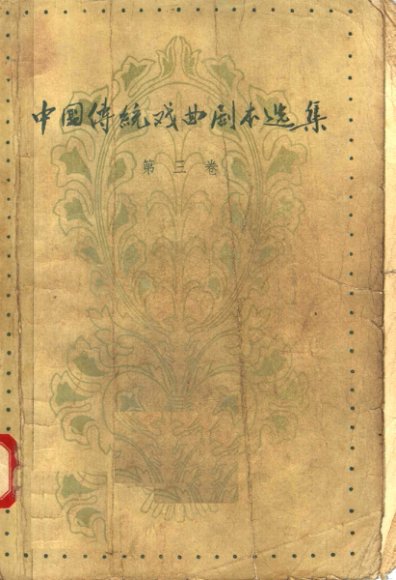 中国傳統戏曲剧本选集
第三卷